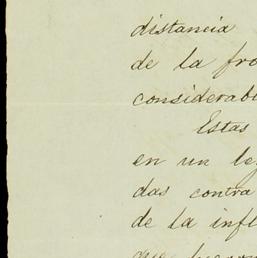 distancia
de la fro
considerab
Estas
en un le
das contra
de la infl
que